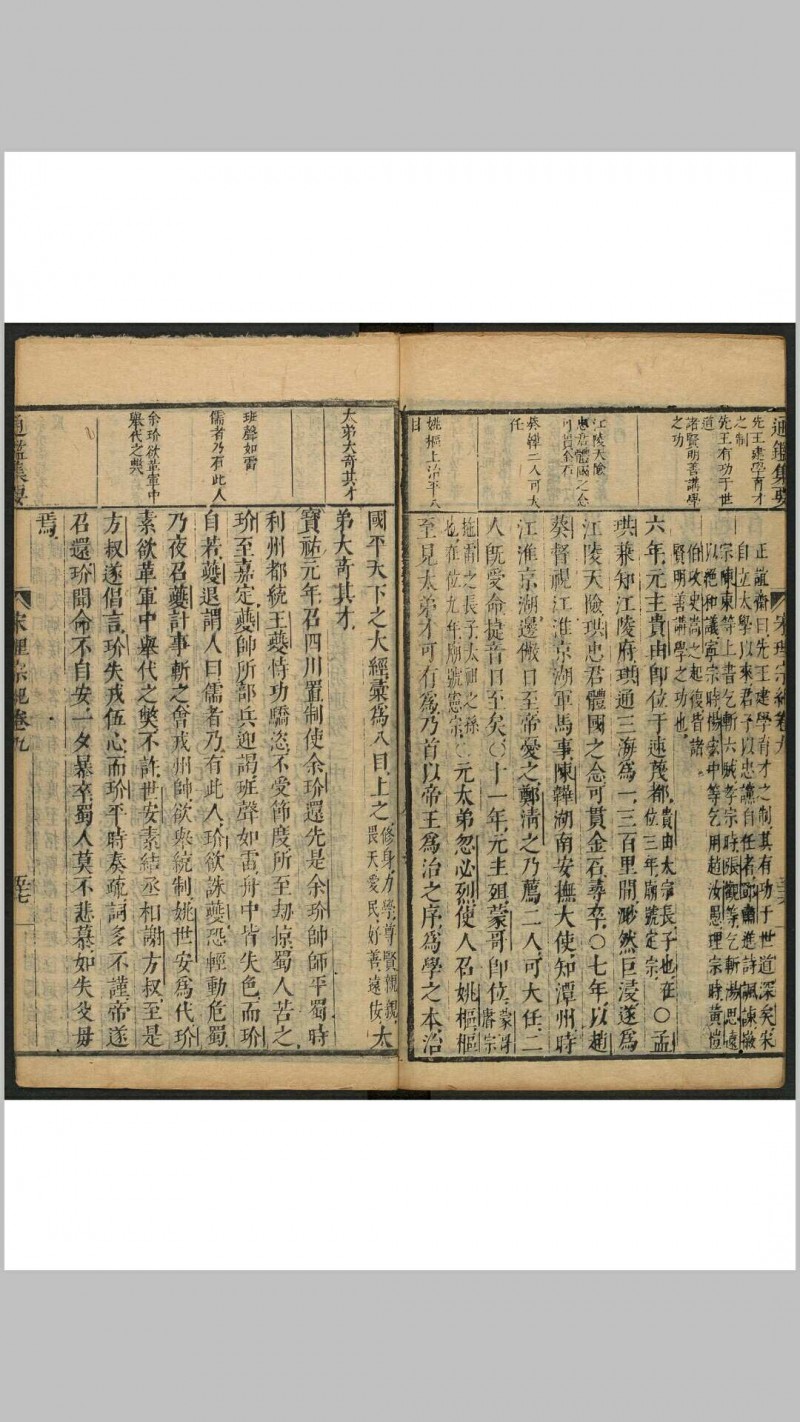 通鑑集要
宋理宗紀卷九
先王建學育才
之制
先王有功于世
道
諸賢明善講學
之功
江陵天險
忠君體國之念
可貫金石
葵韡二人可大
任
姚樞上治平八
目
正誼齋曰先王建學育才之制其有功于世道深矣宋
自立太學以來君子以忠讜自任者鄧肅進詩諷諫徽
宗陳東等上書乞斬六賊孝宗時張觀等乞斬湯思退
以絕和議寧宗時楊宏中等乞用趙汝愚理宗時黃愷
伯攻史嵩之起復皆諸
賢明善講學之功也
六年元主貴由即位于速茂都貴由太宗長子也在位三年廟號定宗〇孟
珙兼知江陵府珙通三海為一三百里間渺然巨浸遂為
江陵天險珙忠君體國之念可貫金石尋卒〇七年以趙
葵督視江淮京湖軍馬事陳韡湖南安撫大使知潭州時
江淮京湖邊儆日至帝憂之鄭清之乃薦二人可大任二
人既受命捷音日至矣〇十一年元主殂蒙哥即位蒙哥睿宗
拖雷之長子太祖之孫也在位九年廟號憲宗〇元太弟忽必烈使人召姚樞樞
至見太弟才可有為乃首以帝王為治之序為學之本治
大弟大奇其才
班聲如雷
儒者乃有此人
余玠欲革軍中
舉代之獘
國平天下之大經彙為八目上之修身力學尊賢親親畏天愛民好善遠佞太
弟大奇其才
寶祐元年召四川置制使余玠還先是余玠帥師平蜀時
利州都統王夔恃功驕恣不受節度所至劫掠蜀人苦之
玠至嘉定夔帥所部兵迎謁班聲如雷舟中皆失色而玠
自若夔退謂人曰儒者乃有此人玠欲誅夔恐輕動危蜀
乃夜召夔計事斬之會戎州帥欲舉統制姚世安為代玠
素欲革軍中舉代之獘不許世安素結丞相謝方叔至是
方叔遂倡言玠失戎伍心而玠平時奏疏詞多不謹帝遂
召還玠聞命不自安一夕暴卒蜀人莫不悲慕如失父母
焉
通鑑集要
宋理宗紀卷九